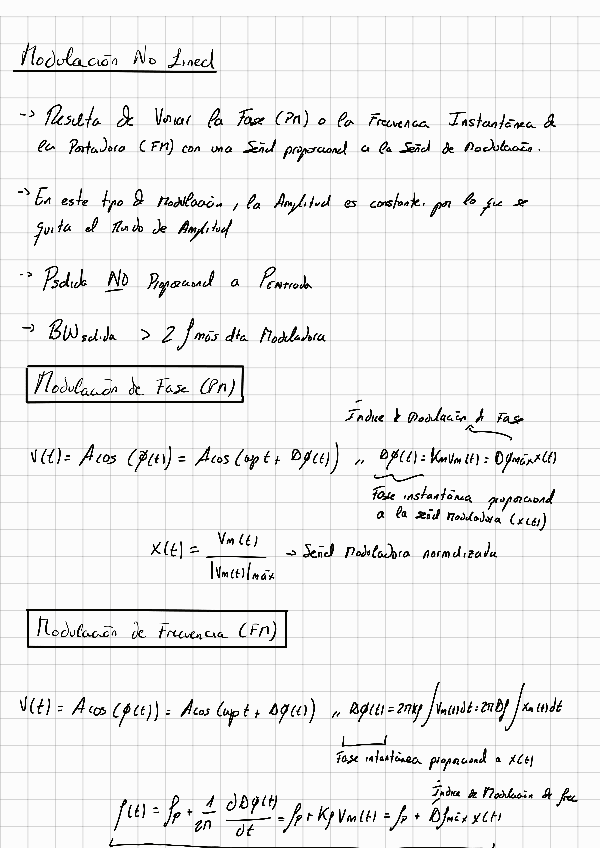 Modulación No Lineal
-> Resulta de Variar la Fase (PM) o la Frecuencia Instantánea de
la Portadora (FM) con una Señal proporcional a la Señal de Modulación.
-> En este tipo de Modulación, la Amplitud es constante, por lo que se
quita el Ruido de Amplitud
-> Psalida NO Proporcional a Pentrada
-> BWsalida > 2 f más alta Moduladora
Modulación de Fase (PM)
Índice de Modulación de Fase
V(t) = A cos (φ(t)) = A cos (ωpt + Dφ(t)) ,, Dφ(t) = KmVm(t) = Dφmáx x(t)
Fase instantánea proporcional
a la señal moduladora (x(t))
X(t) = Vm(t) / |Vm(t)|máx -> Señal Moduladora normalizada
Modulación de Frecuencia (FM)
V(t) = A cos (φ(t)) = A cos (ωpt + Dφ(t)) ,, Dφ(t) = 2πKf ∫Vm(t)dt = 2πDf ∫Xm(t)dt
Fase intantánea proporcional a x(t)
Índice de Modulación de frec
f(t) = fp + 1/2π dDφ(t)/dt = fp + Kf Vm(t) = fp + Dfmáx x(t)